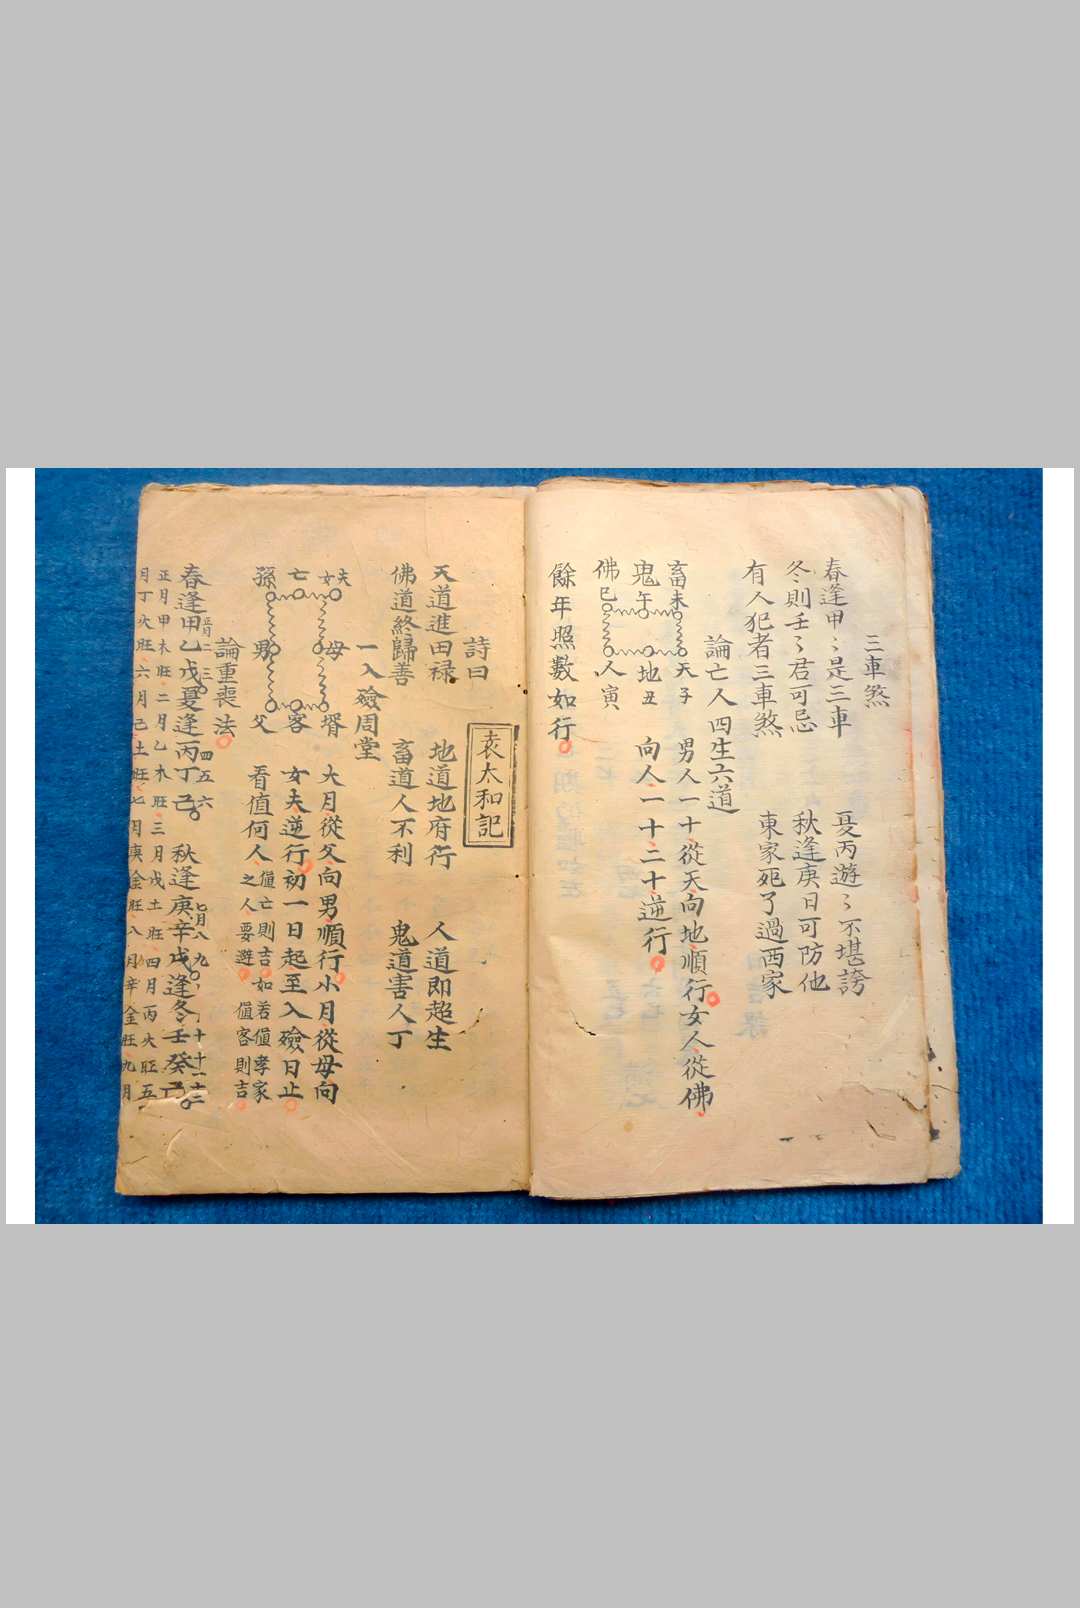 三車煞
春逢甲〻是三車 夏丙遊〻不堪誇
冬則壬〻君可忌 秋逢庚日可防他
有人犯者三車煞 東家死了過西家
論亡人四生六道
畜未 天子 男人一十從天向地順行女人從佛
鬼午 地丑 向人一十二十逆行
佛巳 人寅
餘年照數如行
袁太和記
詩曰
天道進田禄 地道地府行 人道即超生
佛道終歸善 畜道人不利 鬼道害人丁
一入殮周堂
夫 女 母 壻 大月從父向男順行小月從母向
亡 客 女夫逆行初一日起至入殮日止
孫 男 父 看值何人之人要避 值亡則吉如若值孝家 值客則吉
論重喪法
春逢甲乙戊夏逢丙丁己 秋逢庚辛戊逢冬壬癸己
正月二三 四五六 七月八九 十十一十二
正月甲木旺二月乙木旺三月戊土旺四月丙火旺五
月丁火旺六月己土旺七月庚金旺八月辛金旺九月